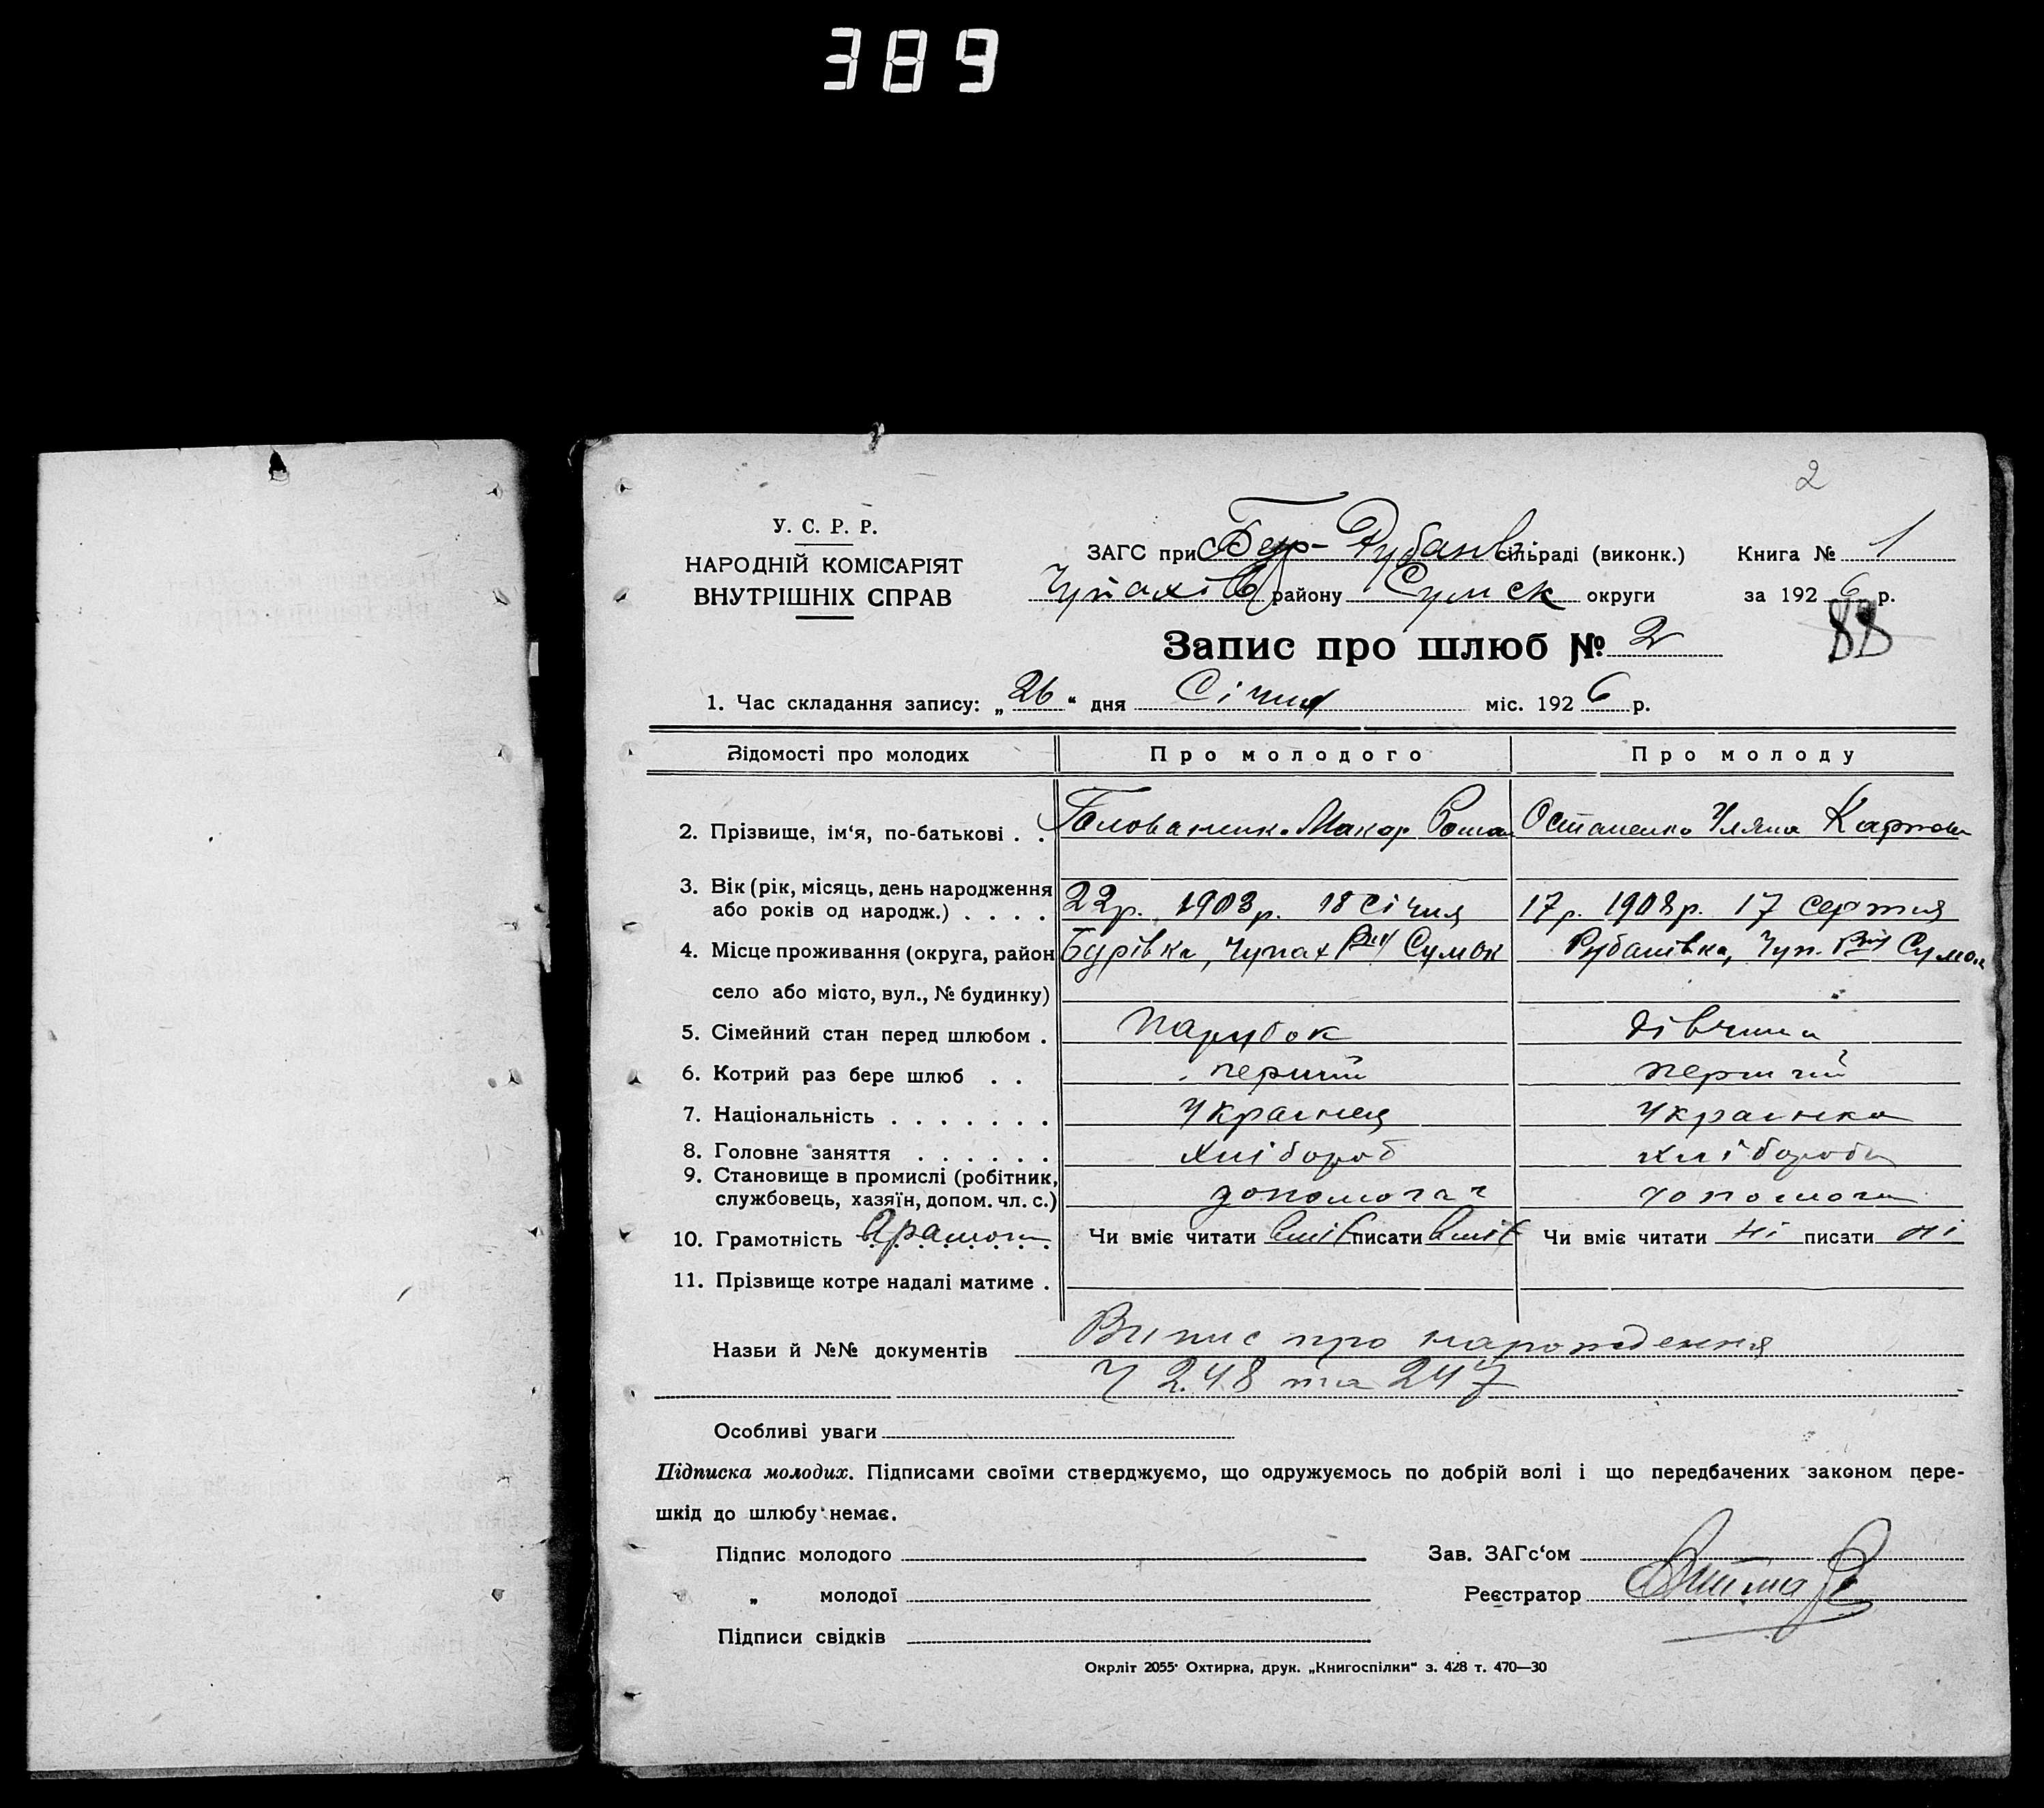 389
2
У. С. Р. Р.
НАРОДНІЙ КОМІСАРІЯТ
ВНУТРІШНІХ СПРАВ
ЗАГС при Бур-Рубанів сільраді (виконк.) Книга № 1
Чупахів району Сумськ округи за 1926 р.
88
Запис про шлюб № 2
1. Час складання запису: „26“ дня Січня міс. 1926 р.
Відомості про молодих Про молодого Про молоду
2. Прізвище, ім‘я, по-батькові . . Голованенко Макар Рома Остапенко Уляна Карпови
3. Вік (рік, місяць, день народження
або років од народж.) . . . . 22р. 1903р. 18 Січня 17р. 1908р. 17 серпня
4. Місце проживання (округа, район Бурівка, Чупах Рну Сумок Рубанівка, Чуп. Рну Сумок
село або місто, вул., № будинку)
5. Сімейний стан перед шлюбом . парубок дівчина
6. Котрий раз бере шлюб . . перший перший
7. Національність . . . . . . . Українец Українка
8. Головне заняття . . . . . . хлібороб хлібороби
9. Становище в промислі (робітник,
службовець, хазяїн, допом. чл. с.) допомагач допомога
10. Грамотність Чи вміє читати вміє писати вміє Чи вміє читати ні писати ні
11. Прізвище котре надалі матиме .
Назви й №№ документів Випис про народження
Ч 248 та 247
Особливі уваги
Підписка молодих. Підписами своїми стверджуємо, що одружуємось по добрій волі і що передбачених законом пере-
шкід до шлюбу немає.
Підпис молодого Зав. ЗАГс‘ом
„ молодої Реєстратор
Підписи свідків
Окрліт 2055· Охтирка, друк. „Книгоспілки“ з. 428 т. 470—30